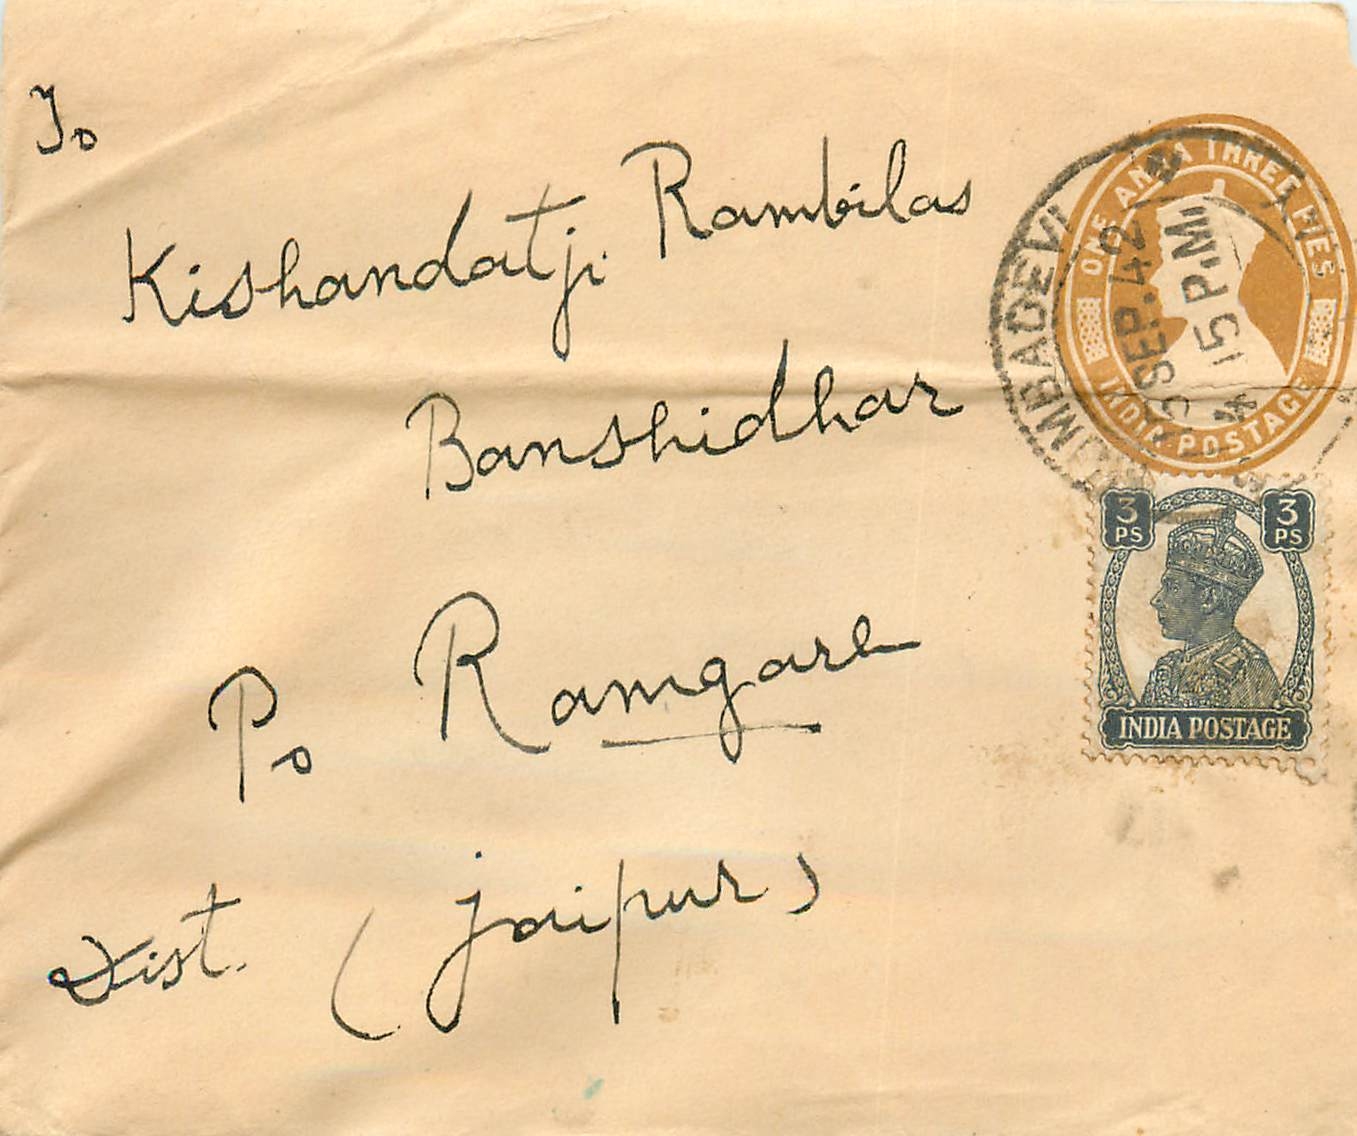 To
Kishandatji Rambilas
Banshidhar
Po Ramgarh
Dist. (jaipur)
ONE ANNA THREE PIES
INDIA POSTAGE
MUMBADEVI
SEP. 42
15 P.M.
3 PS 3 PS
INDIA POSTAGE